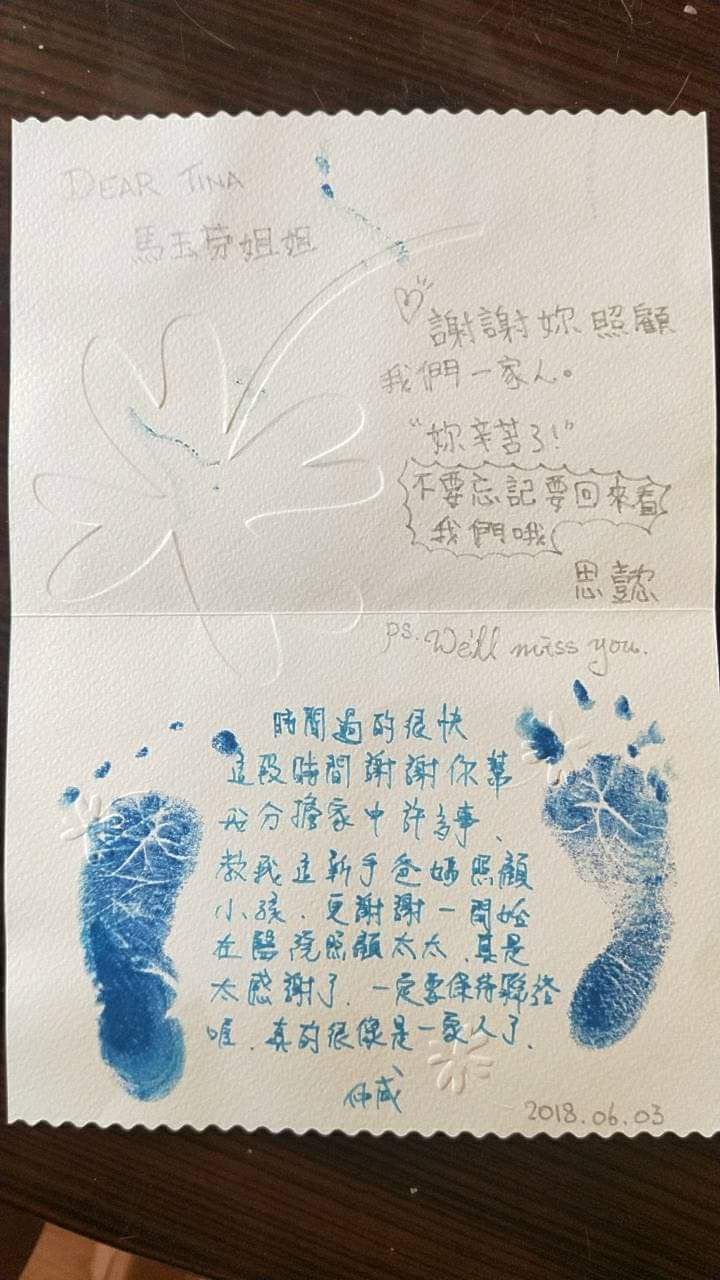 DEAR TINA
馬玉芬姐姐
謝謝妳照顧
我們一家人。
"妳辛苦了!"
不要忘記要回來看
我們哦
思懿
ps. We'll miss you.
時間過的很快
這段時間謝謝你幫
我分擔家中許多事、
教我這新手爸媽照顧
小孩、更謝謝一開始
在醫院照顧太太、真是
太感謝了、一定要保持聯絡
喔、真的很像是一家人了、
仲威
2018.06.03